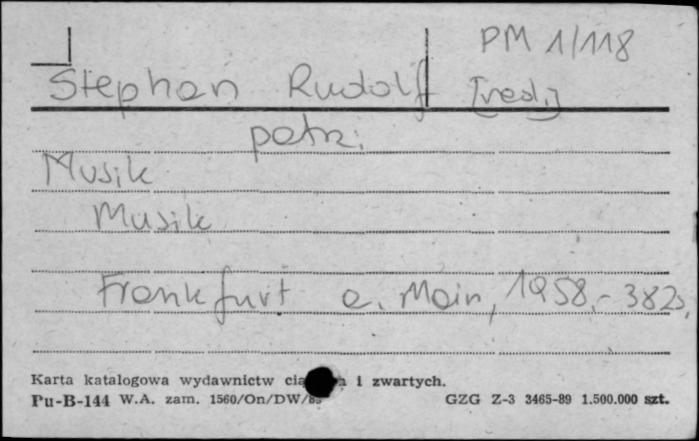 PM 1/118
Stephan Rudolf [red.]
patrz:
Musik
Musik
Frankfurt a. Main, 1958.- 382s.
Karta katalogowa wydawnictw i zwartych.
Pu-B-144 W.A. zam. 1560/On/DW/89 GZG Z-3 3465-89 1.500.000 szt.